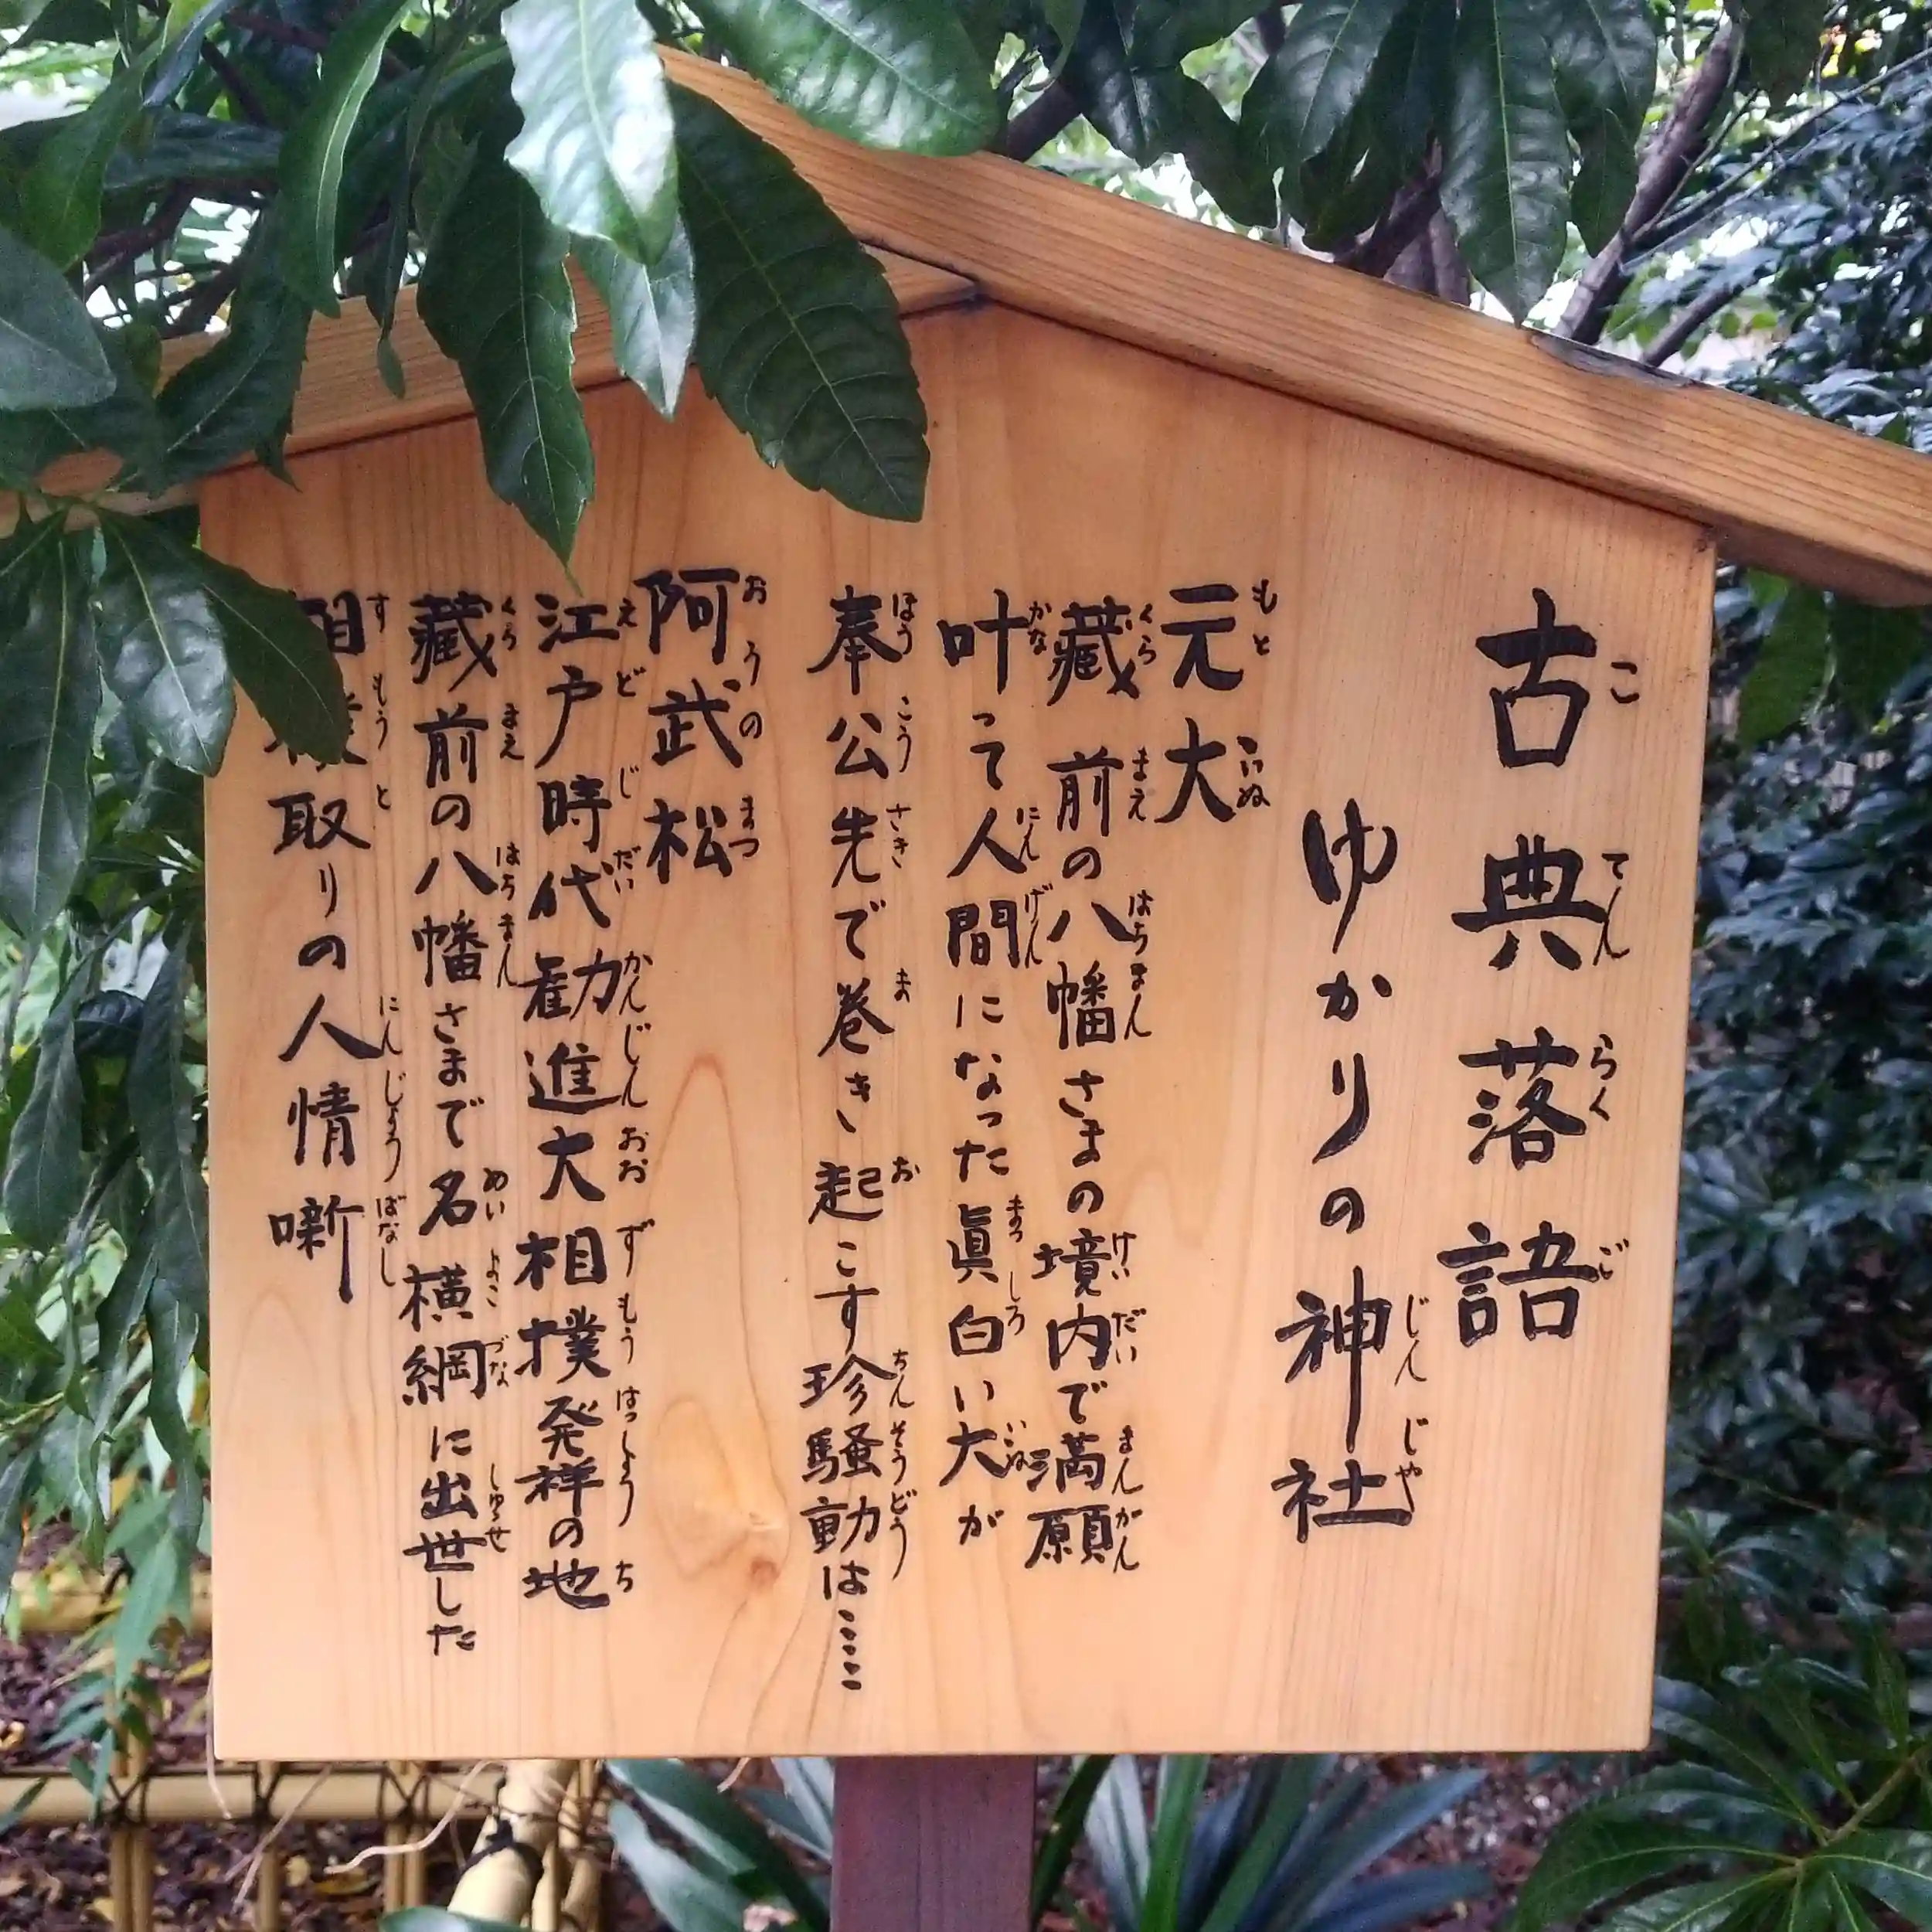 古典落語
ゆかりの神社
元犬
蔵前の八幡さまの境内で満願
叶って人間になった眞白い犬が
奉公先で巻き起こす珍騒動は……
阿武松
江戸時代勧進大相撲発祥の地
藏前の八幡さまで名横綱に出世した
相撲取りの人情噺